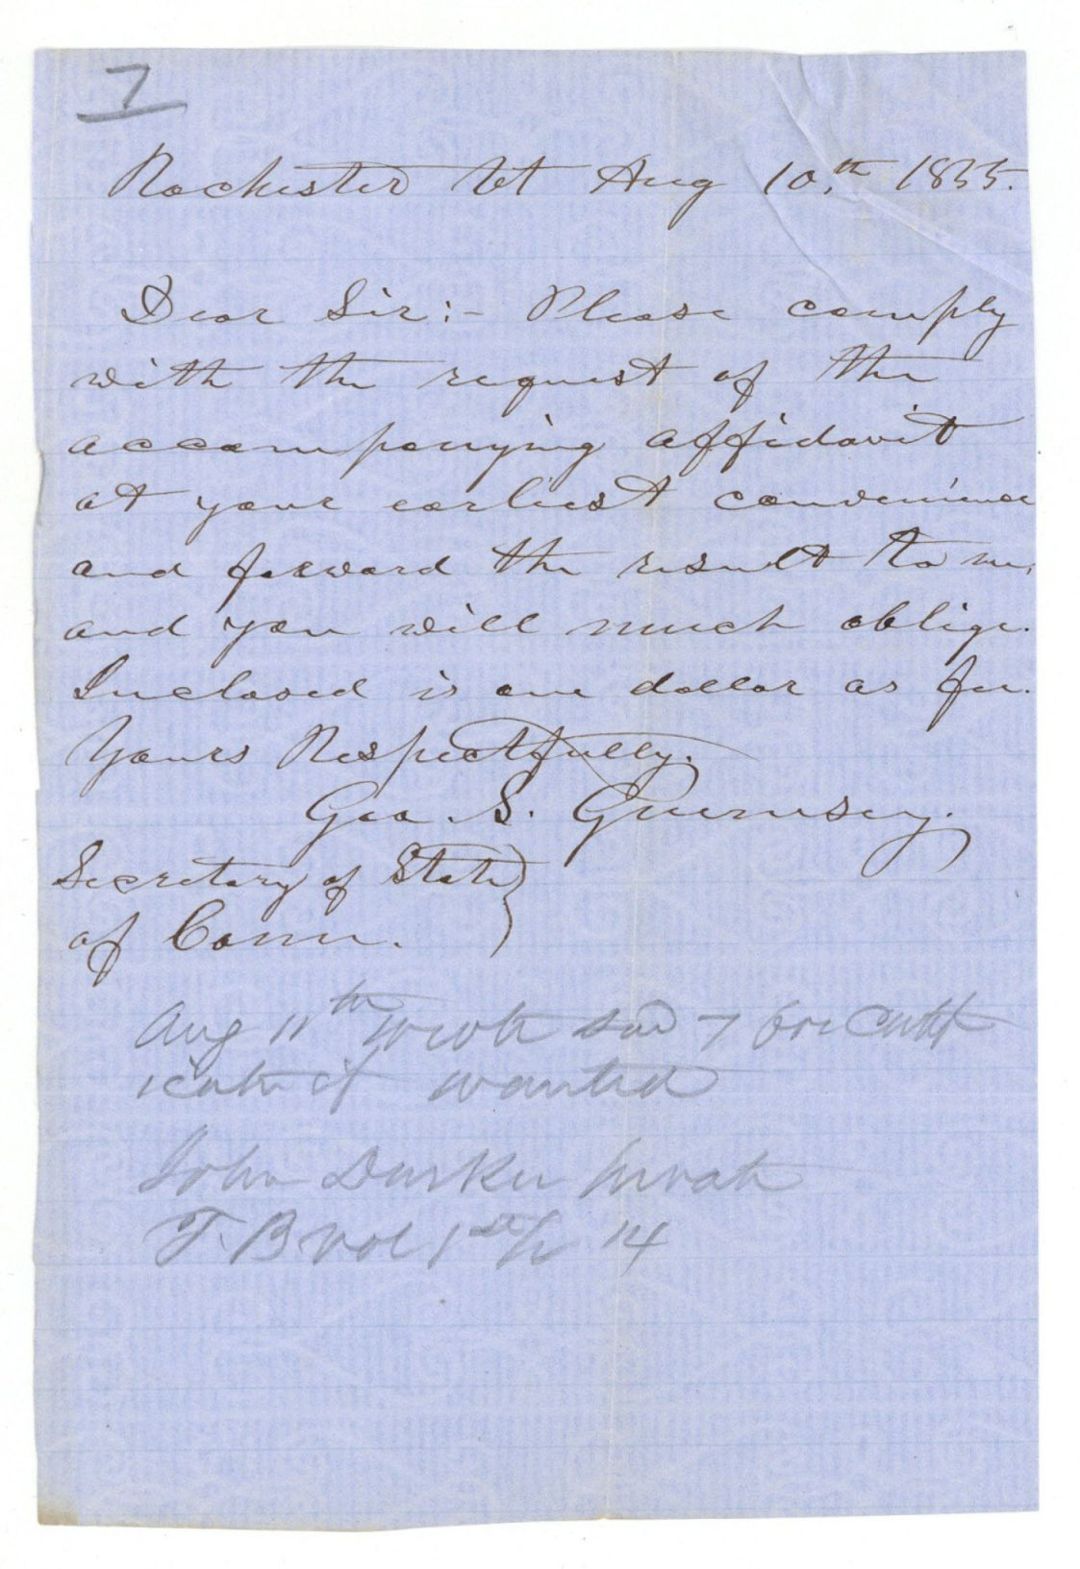 7
Rochester Vt Aug 10.th 1855.
Dear Sir:- Please comply
with the request of the
accompanying affidavit
at your earliest convenience
and forward the result to me,
and you will much oblige.
Inclosed is one dollar as fee.
Yours Respectfully.
Geo S. Guernsey.
Secretary of State
of Conn.
Aug 11th wrote
wanted
John Durkee
T. B vol 1st p 14